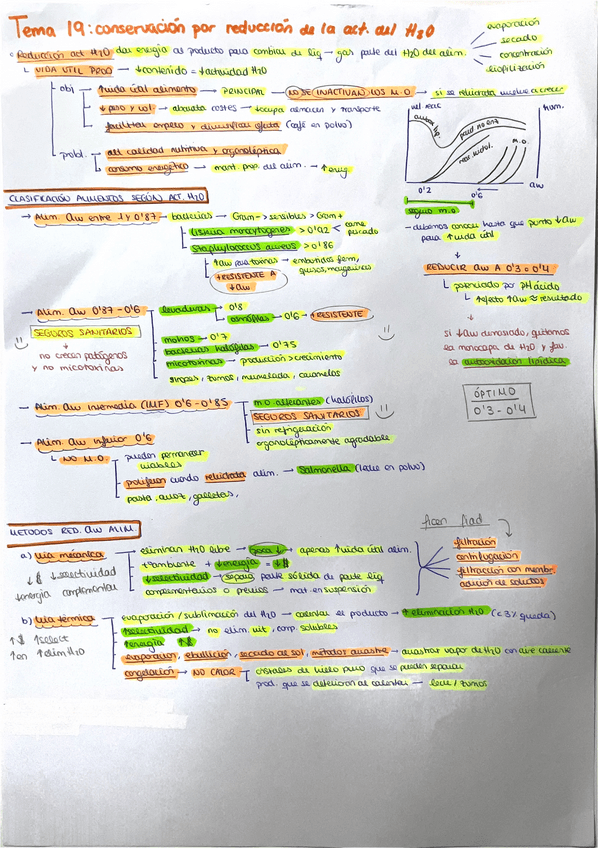 Tema 19: conservación por reducción de la act. del H2O
evaporación
secado
concentración
liofilización
Reducción act H2O dar energía al producto para cambiar de liq → gas parte del H2O del alim.
VIDA UTIL PROD → ↓contenido = ↓actividad H2O
obj → ↑vida útil alimento → PRINCIPAL → NO SE INACTIVAN LOS M.O → si se rehidrata vuelve a crecer
↓ peso y vol → abarata costes → ↓ocupa almacen y transporte
facilitar empleo y diversificar oferta (café en polvo)
probl. → alt calidad nutritiva y organoléptica
consumo energético → mant. prop. del alim. → ↑energ.
vel. reac
hum.
autox lip.
pard no enz
reac. hidrol.
M.O.
0'2
0'6
aw
seguro m.o
- debemos conocer hasta que punto ↓aw para ↑vida útil
REDUCIR aw A 0'3 - 0'4
potenciado por pH ácido
↑efecto ↑aw = resultado
si ↓aw demasiado, quitamos
la monocapa de H2O y fav.
la autooxidación lipídica
ÓPTIMO
0'3 - 0'4
CLASIFICACIÓN ALIMENTOS SEGÚN ACT. H2O
→ Alim. aw entre 1 y 0'87 - bacterias → Gram - > sensibles > Gram +
Listeria monocytogenes > 0'92 < carne pescado
Staphylococcus aureus > 0'86
↑aw para toxinas → embutidos ferm, guisos, mayonesas
+RESISTENTE A ↓aw
→ Alim. aw 0'87 - 0'6
levaduras → 0'8
osmófilas → 0'6 → +RESISTENTE
SEGUROS SANITARIOS
no crecen patógenos
y no micotoxinas
mohos → 0'7
bacterias halófilas → 0'75
micotoxinas → producción > crecimiento
siropes, zumos, mermelada, caramelos
→ Alim. aw intermedia (IMF) 0'6 - 0'85
m.o alterantes (halófilos)
SEGUROS SANITARIOS
sin refrigeración
organolépticamente agradable
→ Alim. aw inferior 0'6
NO M.O.
pueden permanecer viables
proliferan cuando rehidrata alim. → Salmonella (leche en polvo)
pasta, arroz, galletas,
METODOS RED. aw ALIM.
a) vía mecánica → eliminan H2O libre → poca ↓ → apenas ↑vida útil alim.
↓$ ↓selectividad
↓energía complemental
↑ambiente + ↓energía = ↓$
↓selectividad → separa parte sólida de parte liq
complementarios o previos → mat. en suspensión
filtración
centrifugación
filtración con membr.
adición de solutos
b) vía térmica
↑$ ↑select
↑en ↑elim H2O
evaporación / sublimación del H2O → calentar el producto → ↑ eliminación H2O (< 3% queda)
↑selectividad → no elim. vit, comp. solubles
↑energía ↑$
evaporación, ebullición, secado al sol, métodos arrastre → arrastrar vapor de H2O con aire caliente
congelación → NO CALOR
cristales de hielo puro que se pueden separar
prod. que se deterioran al calentar → leche / zumos